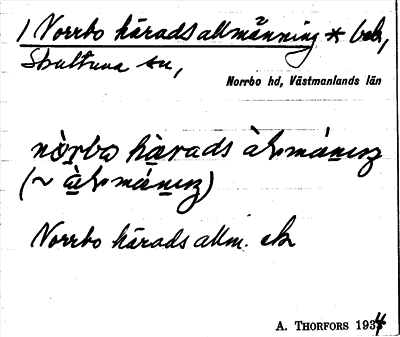 1 Norrbo härads allmänning * bek,
Skultuna sn,
Norrbo hd, Västmanlands län
nòrbo härads àlmánıŋ
(~ àlmánıŋ)
Norrbo härads allm. ek
A. THORFORS 1934